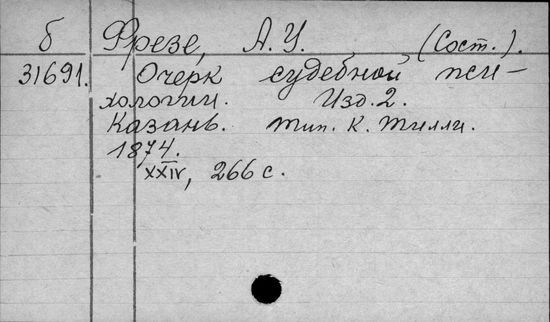 б Фрезе, А. У. (Сост.).
31691. Очерк судебной пси-
хологии. Изд. 2.
Казань. тип. К. Тилли.
1874.
XXIV, 266 с.